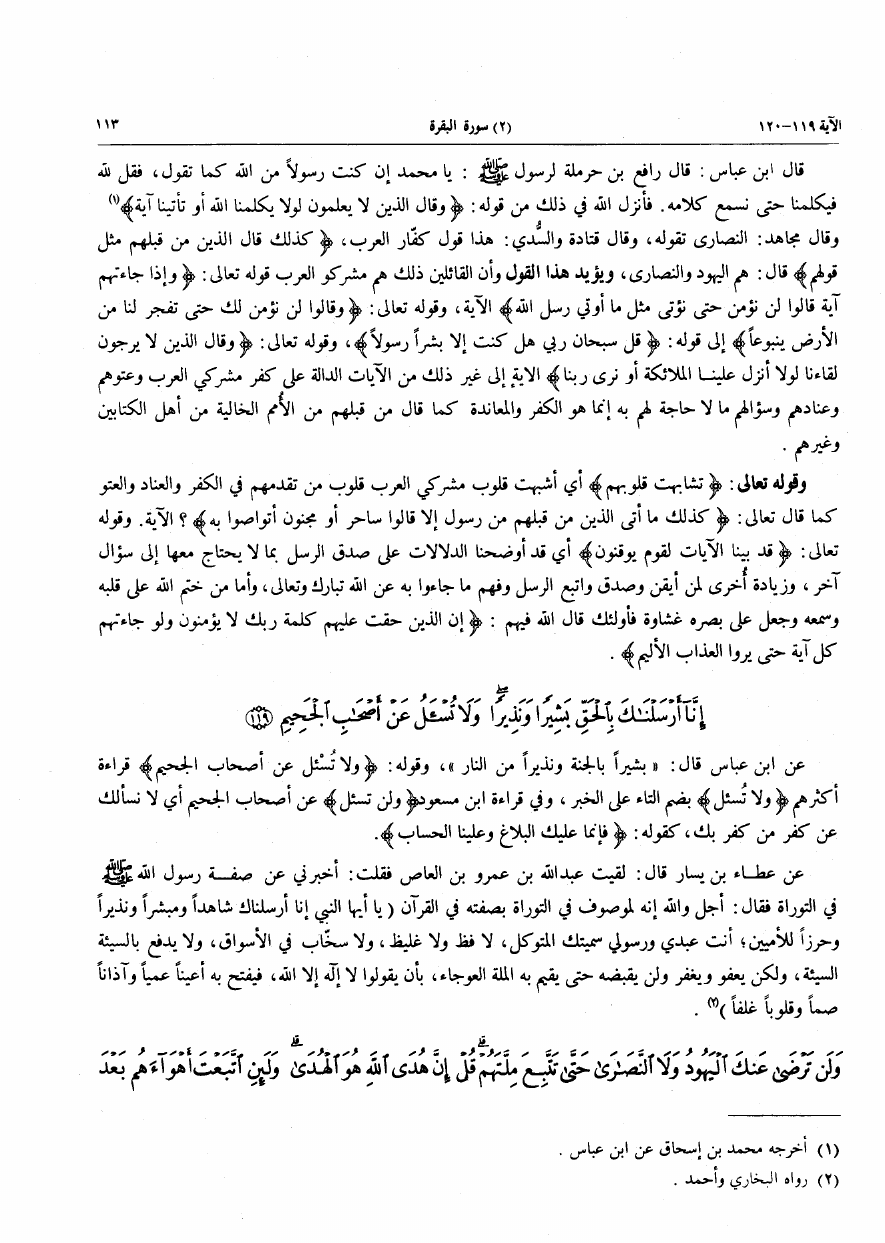 الآية ١١٩-١٢٠ (٢) سورة البقرة ١١٣
قال ابن عباس : قال رافع بن حرملة لرسول ﷺ : يا محمد إن كنت رسولاً من الله كما تقول ، فقل لله
فيكلمنا حتى نسمع كلامه . فأنزل الله في ذلك من قوله : ﴿ وقال الذين لا يعلمون لولا يكلمنا الله أو تأتينا آية ﴾(١)
وقال مجاهد : النصارى تقوله ، وقال قتادة والسُّدي : هذا قول كفّار العرب ، ﴿ كذلك قال الذين من قبلهم مثل
قولهم ﴾ قال : هم اليهود والنصارى ، ويؤيد هذا القول وأن القائلين ذلك هم مشركو العرب قوله تعالى : ﴿ وإذا جاءتهم
آية قالوا لن نؤمن حتى نؤتى مثل ما أوتي رسل الله ﴾ الآية ، وقوله تعالى : ﴿ وقالوا لن نؤمن لك حتى تفجر لنا من
الأرض ينبوعاً ﴾ إلى قوله : ﴿ قل سبحان ربي هل كنت إلا بشراً رسولاً ﴾ ، وقوله تعالى : ﴿ وقال الذين لا يرجون
لقاءنا لولا أنزل علينا الملائكة أو نرى ربنا ﴾ الاية إلى غير ذلك من الآيات الدالة على كفر مشركي العرب وعتوهم
وعنادهم وسؤالهم ما لا حاجة لهم به إنما هو الكفر والمعاندة كما قال من قبلهم من الأُمم الخالية من أهل الكتابين
وغيرهم .
وقوله تعالى : ﴿ تشابهت قلوبهم ﴾ أي أشبهت قلوب مشركي العرب قلوب من تقدمهم في الكفر والعناد والعتو
كما قال تعالى : ﴿ كذلك ما أتى الذين من قبلهم من رسول إلا قالوا ساحر أو مجنون أتواصوا به ﴾ ؟ الآية . وقوله
تعالى : ﴿ قد بينا الآيات لقوم يوقنون ﴾ أي قد أوضحنا الدلالات على صدق الرسل بما لا يحتاج معها إلى سؤال
آخر ، وزيادة أُخرى لمن أيقن وصدق واتبع الرسل وفهم ما جاءوا به عن الله تبارك وتعالى ، وأما من ختم الله على قلبه
وسمعه وجعل على بصره غشاوة فأولئك قال الله فيهم : ﴿ إن الذين حقت عليهم كلمة ربك لا يؤمنون ولو جاءتهم
كل آية حتى يروا العذاب الأليم ﴾ .
إِنَّآ أَرْسَلْنَٰكَ بِٱلْحَقِّ بَشِيرًا وَنَذِيرًا ۖ وَلَا تُسْـَٔلُ عَنْ أَصْحَٰبِ ٱلْجَحِيمِ ﴿١١٩﴾
عن ابن عباس قال : « بشيراً بالجنة ونذيراً من النار » ، وقوله : ﴿ ولا تُسْئل عن أصحاب الجحيم ﴾ قراءة
أكثرهم ﴿ ولا تُسئل ﴾ بضم التاء على الخبر ، وفي قراءة ابن مسعود ﴿ ولن تسئل ﴾ عن أصحاب الجحيم أي لا نسألك
عن كفر من كفر بك ، كقوله : ﴿ فإنما عليك البلاغ وعلينا الحساب ﴾ .
عن عطاء بن يسار قال : لقيت عبدالله بن عمرو بن العاص فقلت : أخبرني عن صفة رسول الله ﷺ
في التوراة فقال : أجل والله إنه لموصوف في التوراة بصفته في القرآن ( يا أيها النبي إنا أرسلناك شاهداً ومبشراً ونذيراً
وحرزاً للأميين ؛ أنت عبدي ورسولي سميتك المتوكل ، لا فظ ولا غليظ ، ولا سخّاب في الأسواق ، ولا يدفع بالسيئة
السيئة ، ولكن يعفو ويغفر ولن يقبضه حتى يقيم به الملة العوجاء ، بأن يقولوا لا إلّه إلا الله ، فيفتح به أعيناً عمياً وآذاناً
صماً وقلوباً غلفاً )(٢) .
وَلَن تَرْضَىٰ عَنكَ ٱلْيَهُودُ وَلَا ٱلنَّصَٰرَىٰ حَتَّىٰ تَتَّبِعَ مِلَّتَهُمْ ۗ قُلْ إِنَّ هُدَى ٱللَّهِ هُوَ ٱلْهُدَىٰ ۗ وَلَئِنِ ٱتَّبَعْتَ أَهْوَآءَهُم بَعْدَ
(١) أخرجه محمد بن إسحاق عن ابن عباس .
(٢) رواه البخاري وأحمد .